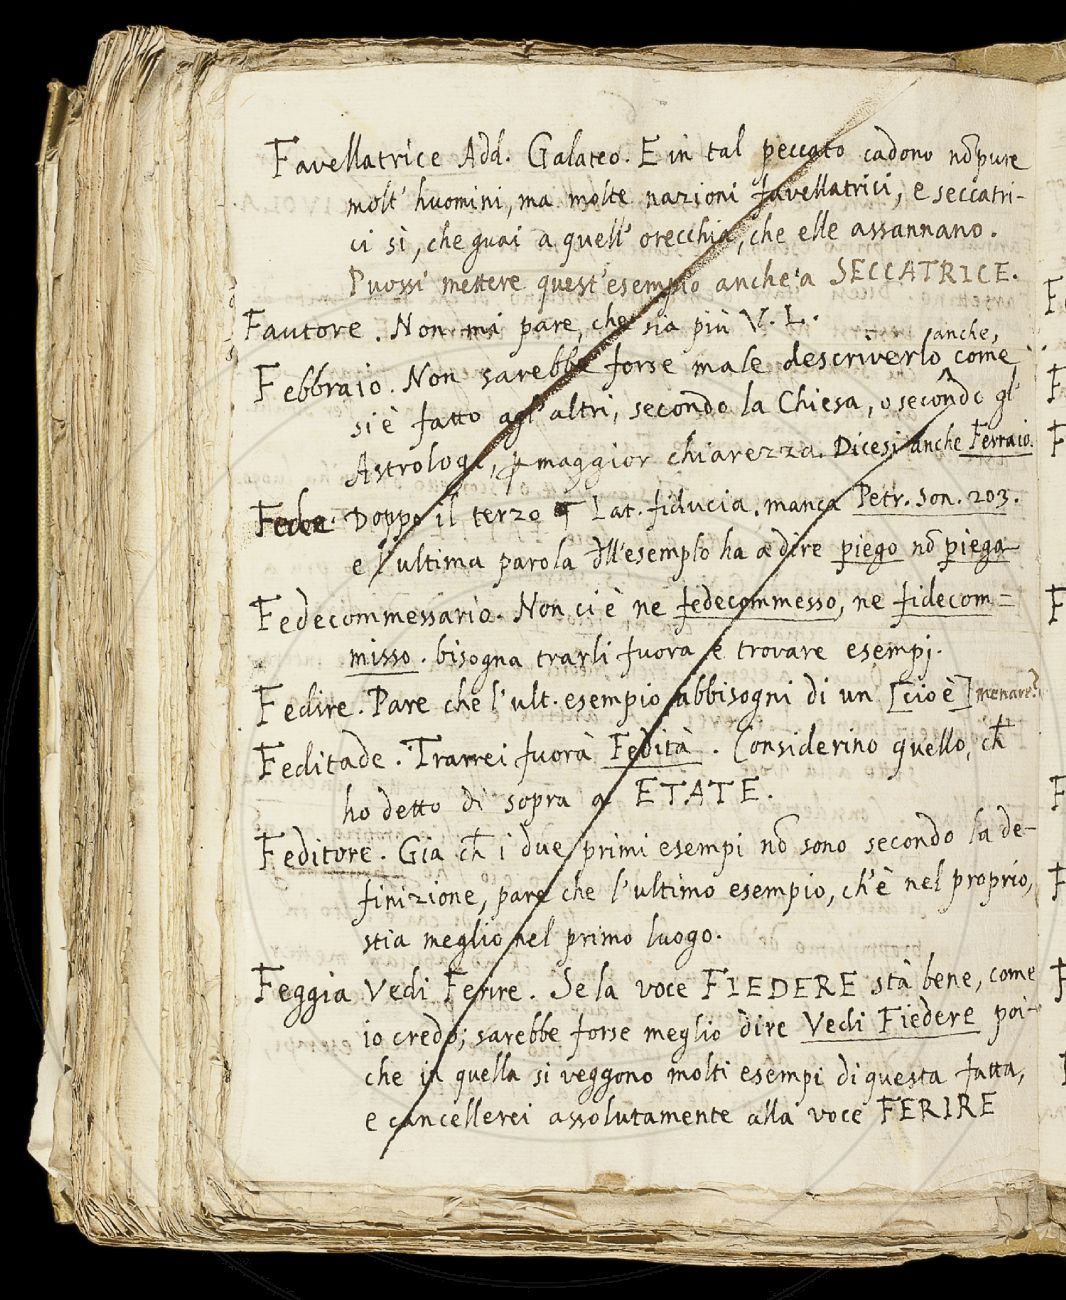 Favellatrice Add. Galateo. E in tal peccato cadono nō pure
molt' huomini, ma molte nazioni favellatrici, e seccatri-
ci sì, che guai a quell' orecchia, che elle assannano.
Puossi mettere quest'esempio anche a SECCATRICE.
Fautore. Non mi pare, che sia più V. L.
Febbraio. Non sarebbe forse male descriverlo anche, come
si è fatto agl' altri, secondo la Chiesa, o secōdo gl'
Astrologi, ꝑ maggior chiarezza. Dicesi anche Ferraio.
Fede. Doppo il terzo § Lat. fiducia. manca Petr. Son. 203.
e l'ultima parola dll'esemplo ha a dire piego nō piega
Fedecommessario. Non ci è ne fedecommesso, ne fidecom=
misso. bisogna trarli fuora e trovare esempj.
Fedire. Pare che l'ult. esempio abbisogni di un [cioè] menare?
Feditade. Trarrei fuora Fedità. Considerino quello, ch̄
ho detto di sopra a ETATE.
Feditore. Gia ch̄ i due primi esempi nō sono secondo la de-
finizione, pare che l'ultimo esempio, ch'è nel proprio,
stia meglio nel primo luogo.
Feggia Vedi Ferire. Se la voce FIEDERE stà bene, come
io credo; sarebbe forse meglio dire Vedi Fiedere poi-
che in quella si veggono molti esempi di questa fatta,
e cancellerei assolutamente alla voce FERIRE